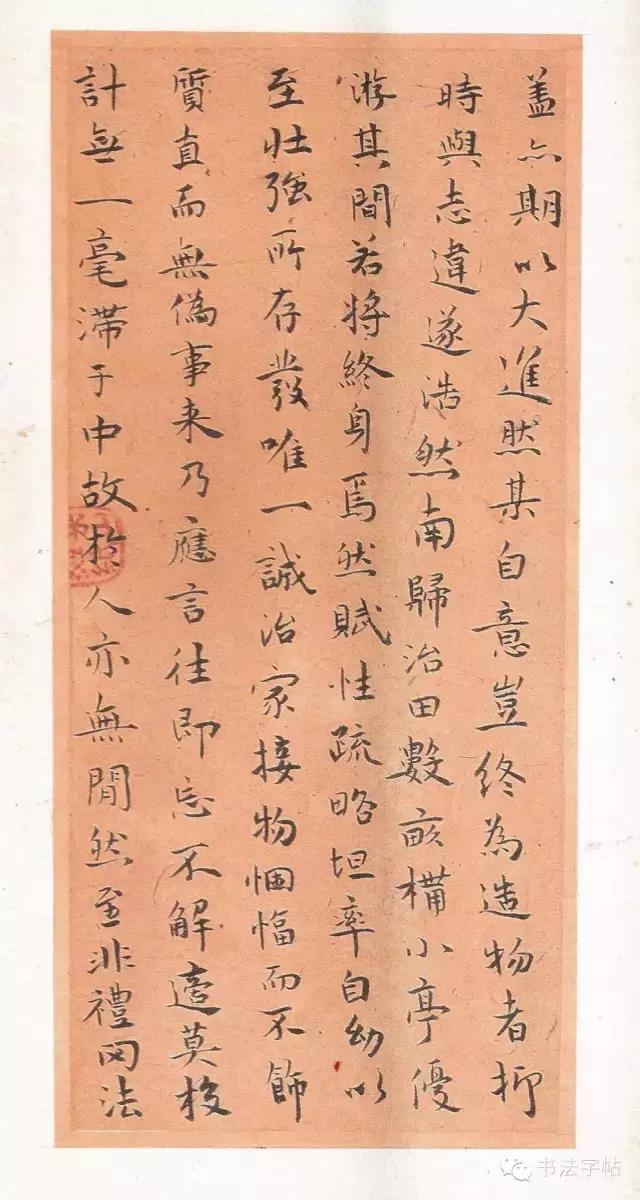 蓋亦期以大進然某自意豈終為造物者抑
時與志違遂浩然南歸治田數畝構小亭優
游其間若將終身焉然賦性疏略坦率自幼以
至壯強所存發唯一誠治家接物悃愊而不飾
質直而無偽事来乃應言往即忘不解適莫校
計無一毫滯于中故於人亦無間然至非禮罔法
书法字帖